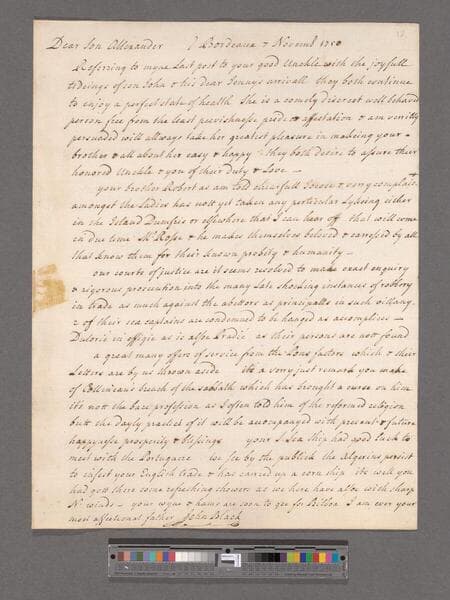 Dear Son Allexander Bordeaux 7 Novemb 1750
Referring to myne Last post to your good Unckle with the joyfull
tideings of son John & his dear Jennys arrivall they both continue
to enjoy a perfect state of health She is a comely discreet well behaved
person free from the least peevishnesse pride or affectation & am verilly
perswaded will allways take her greatest pleasure in makeing your
brother & all about her easy & happy they both desire to assure their
honored Unckle & you of their duty & Love
your brother Robert as am told chearfull & very complait
amongst the Ladies has nott yet taken any particular Lykeing either
in the Island Dumfris or elsewhere that I can hear off that will come
in due time Mr Rosse & he makes themselves beloved & caressed by all
that know them for their known probity & humanity
our courts of justice are it seems resolved to make exact enquiry
& rigorous prosecution into the many Late shocking instances of robbery
in trade as much against the abettors as principalls in such
2 of their sea captains are condemned to be hanged as accomplices
in effigie as is allso as their persons are nott found
a great many offers of service from the Lons factors which & their
Letters are by us thrown aside its a very just remark you make
of breach of the sabbath which has brought a curse on him
its nott the bare profession as I often told him of the reformed religion
butt the dayly practice of it will be accompanyed with present & future
happynesse prosperity & blessings your S. Sea Ship had good luck to
meet with the Portuguese we see by the publick the Algerins persist
to infest your English trade & has carried up a corn ship its well you
had gott there some refreshing showers as we here have allso with sharp
N winds your wyns & hams are soon to goe for Bilboa I am ever your
most affectionat father John Black